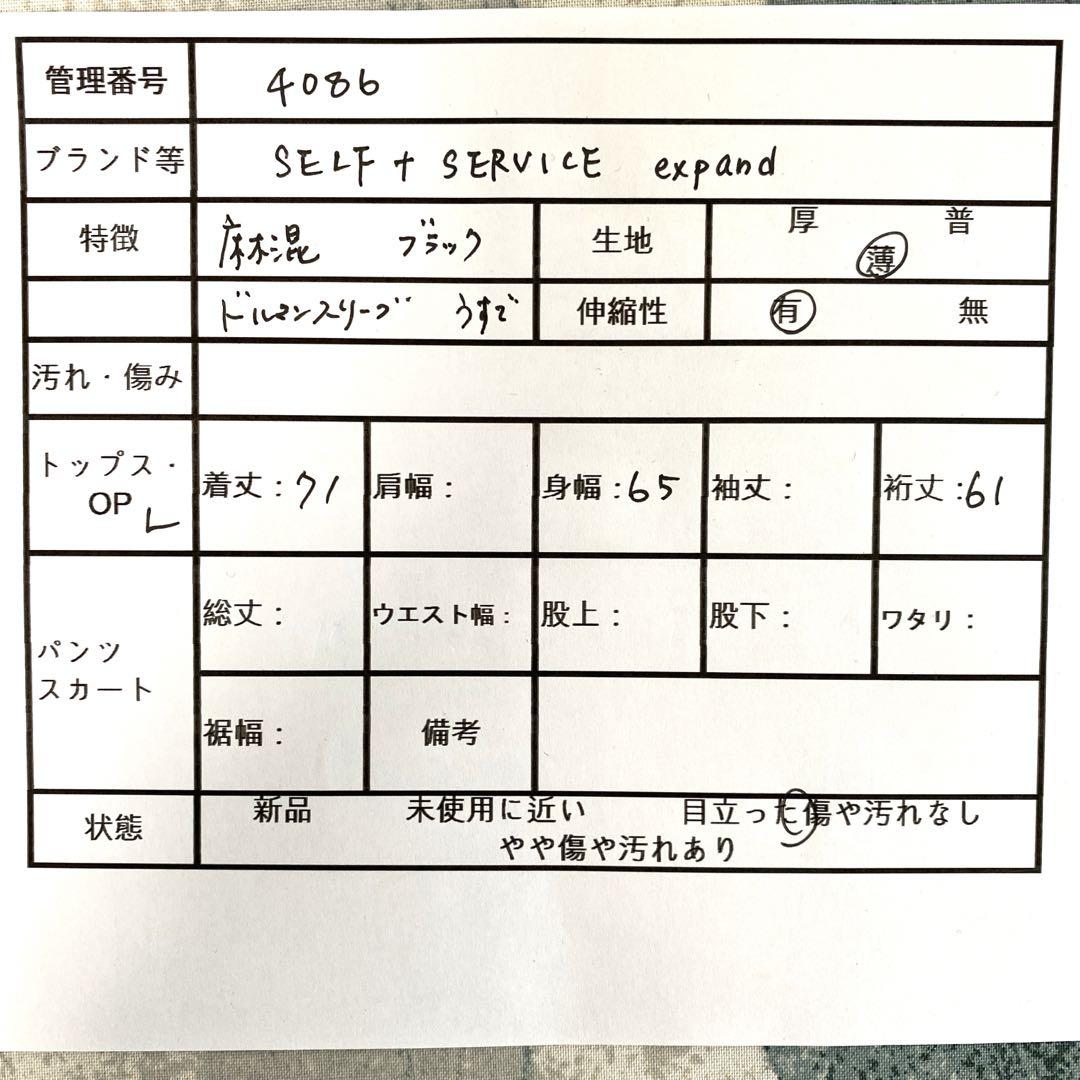 管理番号 4086
ブランド等 SELF + SERVICE expand
特徴 麻混 ブラック 生地 厚 普 薄
ドルマンスリーブ うすで 伸縮性 有 無
汚れ・傷み
トップス・OP 着丈：71 肩幅： 身幅：65 袖丈： 裄丈：61
パンツ スカート 総丈： ウエスト幅： 股上： 股下： ワタリ：
裾幅： 備考
状態 新品 未使用に近い 目立った傷や汚れなし
やや傷や汚れあり